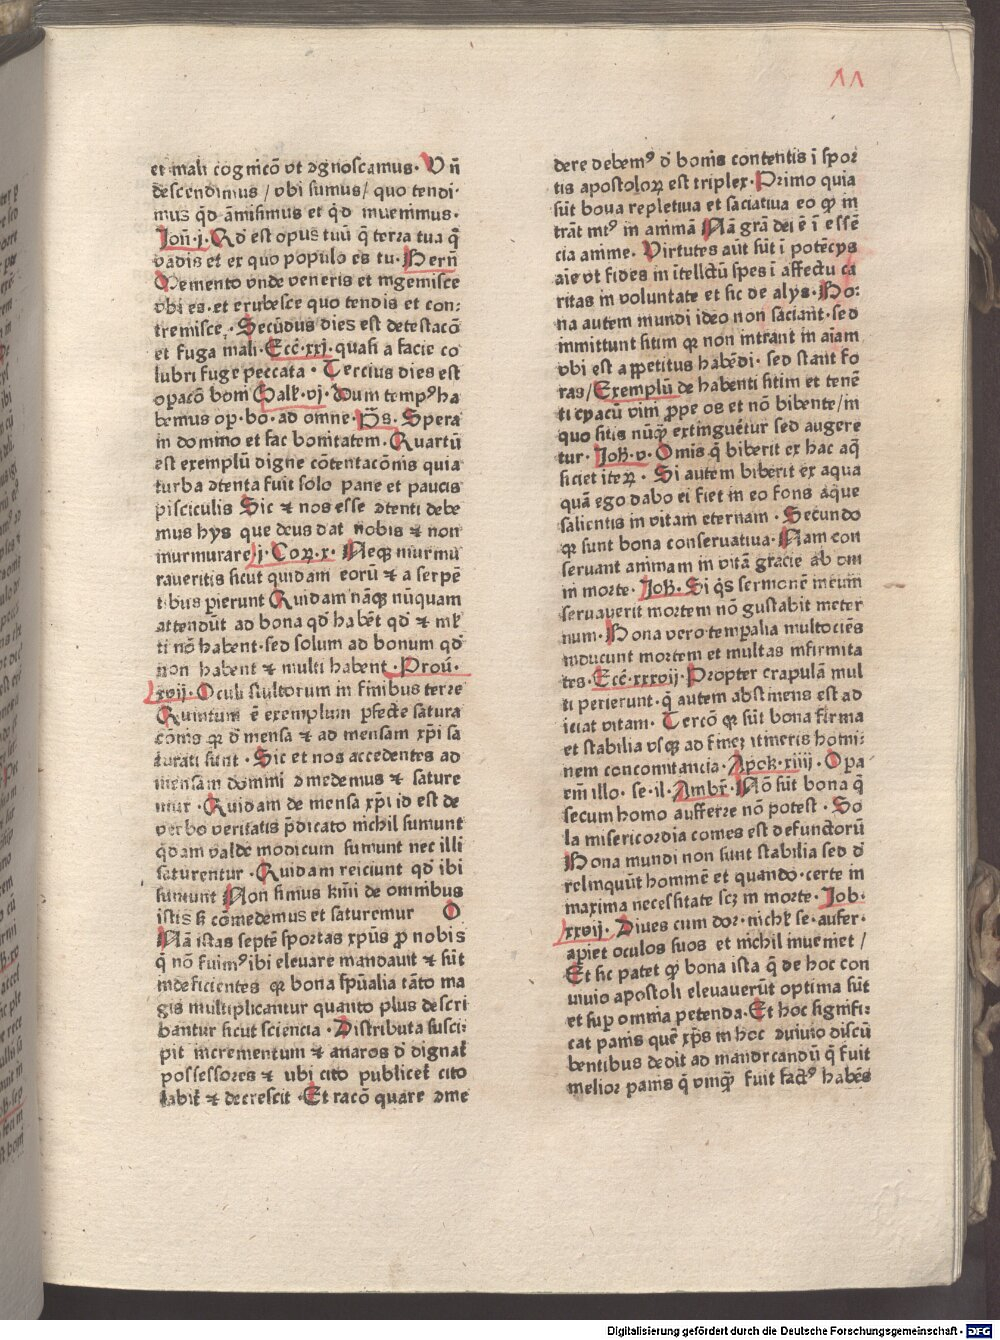 ΛΛ
et mali cognicõ vt ꝯgnoscamus. Vñ
descendimus / vbi sumus / quo tendi⸗
mus qđ ãmisimus et qđ inuenimus.
Joñ.j. Qđ est opus tuũ q̃ terra tua q̃
vadis et ex quo populo es tu. Berñ
Memento vnde veneris et ingemisce
vbi es. et erubesce quo tendis et con⸗
tremisce. Secũdus dies est detestacõ
et fuga mali. Eccͤ.xxj. quasi a facie co
lubri fuge peccata. Tercius dies est
oꝑacõ boni Galꝭ.vj. Dum tempꝰ ha
bemus oꝑ.bo.ad omne. Pš. Spera
in domino et fac bonitatem. Quartũ
est exemplũ digne cõtentacõnis quia
turba ꝯtenta fuit solo pane et paucis
pisciculis Sic ⁊ nos esse ꝯtenti debe
mus hys que deus dat nobis ⁊ non
murmurare j. Coꝝ.x. Neqꝫ murmu
raueritis sicut quidam eorũ ⁊ a serpẽ
tibus pierunt Quidam nãqꝫ nũquam
attendũt ad bona qđ habẽt qđ ⁊ ml̃
ti nõ habent. sed solum ad bonum qđ
non habent ⁊ multi habent. Prou.
xvij. Oculi stultorum in finibus terre
Quintum ẽ exemplum ꝑfecte satura
cõnis qꝛ đ mensa ⁊ ad mensam xp̃i sa
turati sunt. Sic et nos accedentes ad
mensam domini ꝯmedemus ⁊ sature
mur. Quidam de mensa xp̃i id est de
verbo veritatis p̃dicato nichil sumunt
q̃dam valde modicum sumunt nec illi
saturentur. Quidam reiciunt qđ ibi
sumunt Non simus kĩni de omnibus
istis ꝫ cõmedemus et saturemur O
Nã istas septẽ sportas xp̃us ꝓ nobis
q̃ nõ fuimꝰ ibi eleuare mandauit ⁊ sũt
indeficientes qꝛ bona sp̃ualia tãto ma
gis multiplicantur quanto plus descri
bantur sicut sciencia. Distributa susci⸗
pit incrementum ⁊ auaros đ dignat̃
possessores ⁊ ubi cito publicet̃ cito
labit̃ ⁊ decrescit. Et racõ quare ꝯme
dere debemꝰ đ bonis contentis ĩ spor
tis apostoloꝝ est triplex. Primo quia
sũt bona repletiua et saciatiua eo ꝙ in
trãt intꝰ in animã Nã grã dei ẽ ĩ essẽ
cia anime. Virtutes aũt sũt ĩ potẽcys
aĩe vt fides in ĩtellctũ spes ĩ affectu ca
ritas in voluntate et sic de alys. Bo⸗
na autem mundi ideo non saciant. sed
inmittunt sitim qꝛ non intrant in aĩam
vbi est appetitus habẽdi. sed stant fo
ras / Exemplũ de habenti sitim et tenẽ
ti cyacũ vini ꝓpe os et nõ bibente / in
quo sitis nũqꝫ extinguẽtur sed augere
tur. Joh̃.v. Omis q̃ biberit ex hac aq̃
siciet iteꝝ. Si autem biberit ex aqua
quã ego dabo ei fiet in eo fons aque
salientis in vitam eternam. Secundo
qꝛ sunt bona conseruatiua. Nam con
seruant animam in vitã gracie ab om
in morte. Joh̃. Si q̃s sermonẽ meum
seruauerit mortem nõ gustabit in eter
num. Bona vero temꝑalia multociẽs
inducunt mortem et multas infirmita
tes. Eccͤ.xxxvij. Propter crapulã mul
ti perierunt. q̃ autem abstinens est ad
iciat vitam. Tercõ qꝛ sũt bona firma
et stabilia vsqꝫ ad fineꝫ itineris homi⸗
nem concomitancia. Apoꝭ.xiiij. Opa
em̃ illo. se.il. Ambr̃. Nõ sũt bona q̃
secum homo aufferre nõ potest. So
la misericordia comes est defunctorũ
Bona mundi non sunt stabilia sed đ
relinquũt hommẽ et quando. certe in
maxima necessitate scꝫ in morte. Job.
xxvij. Diues cum dor. nichꝭ se. aufer.
apiet oculos suos et nichil inueniet /
Et sic patet ꝙ bona ista q̃ de hoc con
uiuio apostoli eleuauerũt optima sũt
et suꝑ omnia petenda. Et hoc signifi⸗
cat panis quẽ xp̃s in hoc ꝯuiuio discũ
bentibus dedit ad manducandũ q̃ fuit
melior panis q̃ vnqꝫ fuit factꝰ habẽs
Digitalisierung gefördert durch die Deutsche Forschungsgemeinschaft - DFG